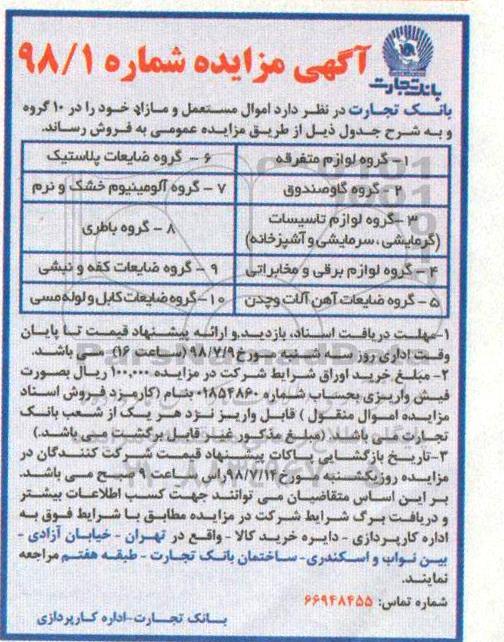 بانک تجارت
آگهی مزایده شماره ۹۸/۱
بانک تجارت در نظر دارد اموال مستعمل و مازاد خود را در ۱۰ گروه
و به شرح جدول ذیل از طریق مزایده عمومی به فروش رساند.
۱- گروه لوازم متفرقه
۶ - گروه ضایعات پلاستیک
۲- گروه گاوصندوق
۷ - گروه آلومینیوم خشک و نرم
۳ - گروه لوازم تاسیسات
(گرمایشی، سرمایشی و آشپزخانه)
۸ - گروه باطری
۴ - گروه لوازم برقی و مخابراتی
۹ - گروه ضایعات کفه و نبشی
۵ - گروه ضایعات آهن آلات وچدن
۱۰- گروه ضایعات کابل و لوله مسی
۱-مهلت دریافت اسناد، بازدید و ارائه پیشنهاد قیمت تا پایان
وقت اداری روز سه شنبه مورخ ۹۸/۷/۹ (ساعت ۱۶) می باشد.
۲- مبلغ خرید اوراق شرایط شرکت در مزایده ۱۰۰,۰۰۰ ریال بصورت
فیش واریزی بحساب شماره ۰۱۸۵۴۸۶۰ بنام (کارمزد فروش اسناد
مزایده اموال منقول) قابل واریز نزد هر یک از شعب بانک
تجارت می باشد. (مبلغ مذکور غیر قابل برگشت می باشد.)
۳-تاریخ بازگشایی پاکات پیشنهاد قیمت شرکت کنندگان در
مزایده روز یکشنبه مورخ ۹۸/۷/۱۴ راس ساعت ۹ صبح می باشد.
بر این اساس متقاضیان می توانند جهت کسب اطلاعات بیشتر
و دریافت برگ شرایط شرکت در مزایده مطابق با شرایط فوق به
اداره کارپردازی - دایره خرید کالا - واقع در تهران - خیابان آزادی -
بین نواب و اسکندری- ساختمان بانک تجارت - طبقه هفتم مراجعه
نمایند.
شماره تماس: ۶۶۹۴۸۴۵۵
بانک تجارت-اداره کارپردازی